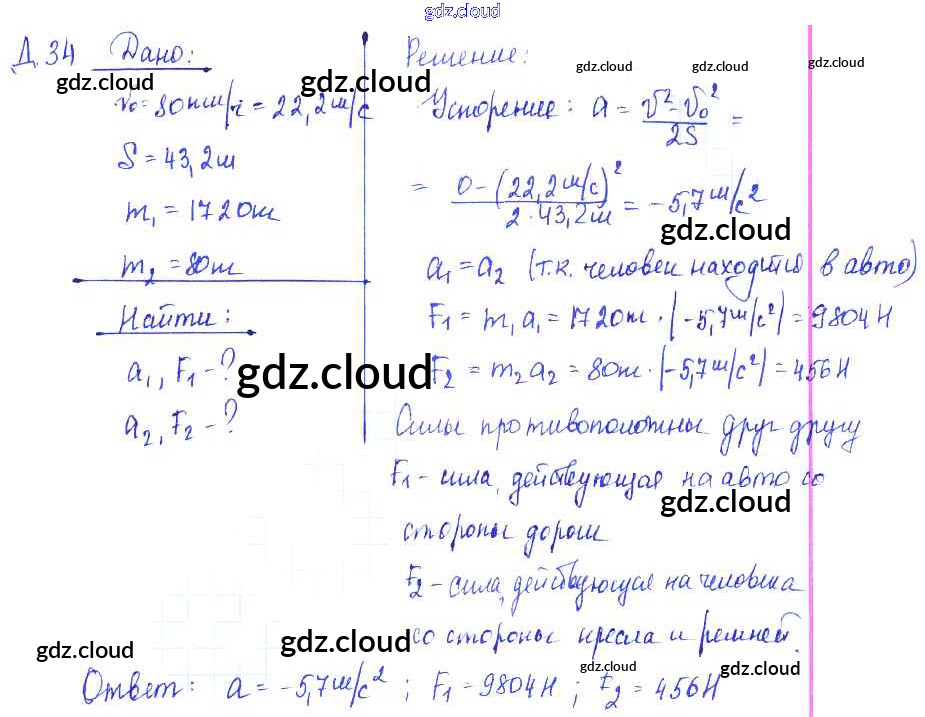 gdz.cloud
Д.34 Дано:
gdz.cloud
v₀=80км/ч=22,2м/с
S=43,2м
m₁=1720т
m₂=80т
Найти:
a₁, F₁-?
a₂, F₂-?
gdz.cloud
Решение:
gdz.cloud gdz.cloud
Ускорение: a = (v²-v₀²)/2S =
= (0-(22,2м/с)²)/(2·43,2м) = -5,7м/с²
gdz.cloud
a₁=a₂ (т.к. человек находится в авто)
F₁=m₁a₁=1720т·|-5,7м/с²|=9804Н
F₂=m₂a₂=80т·|-5,7м/с²|=456Н
Силы противоположны друг другу
F₁-сила, действующая на авто со
gdz.cloud
стороны дороги
F₂-сила, действующая на человека
со стороны кресла и ремней.
gdz.cloud gdz.cloud gdz.cloud gdz.cloud
Ответ: a=-5,7м/с²; F₁=9804Н; F₂=456Н